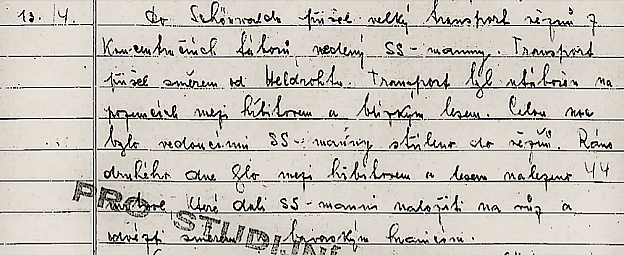 13./4. Do Schönwaldu přišel velký transport vězňů z
Koncentračních táborů, vedený SS-manny. Transport
přišel směrem od Heldrohtu. Transport byl utábořen na
pozemcích mezi hřbitovem a blízkým lesem. Celou noc
bylo vedoucími SS-manny stříleno do vězňů. Ráno
druhého dne bylo mezi hřbitovem a lesem nalezeno 44
mrtvol které dali SS-manni naložiti na vůz a
odvézti směrem bavorským hranicím.
PRO STUDIJNÍ